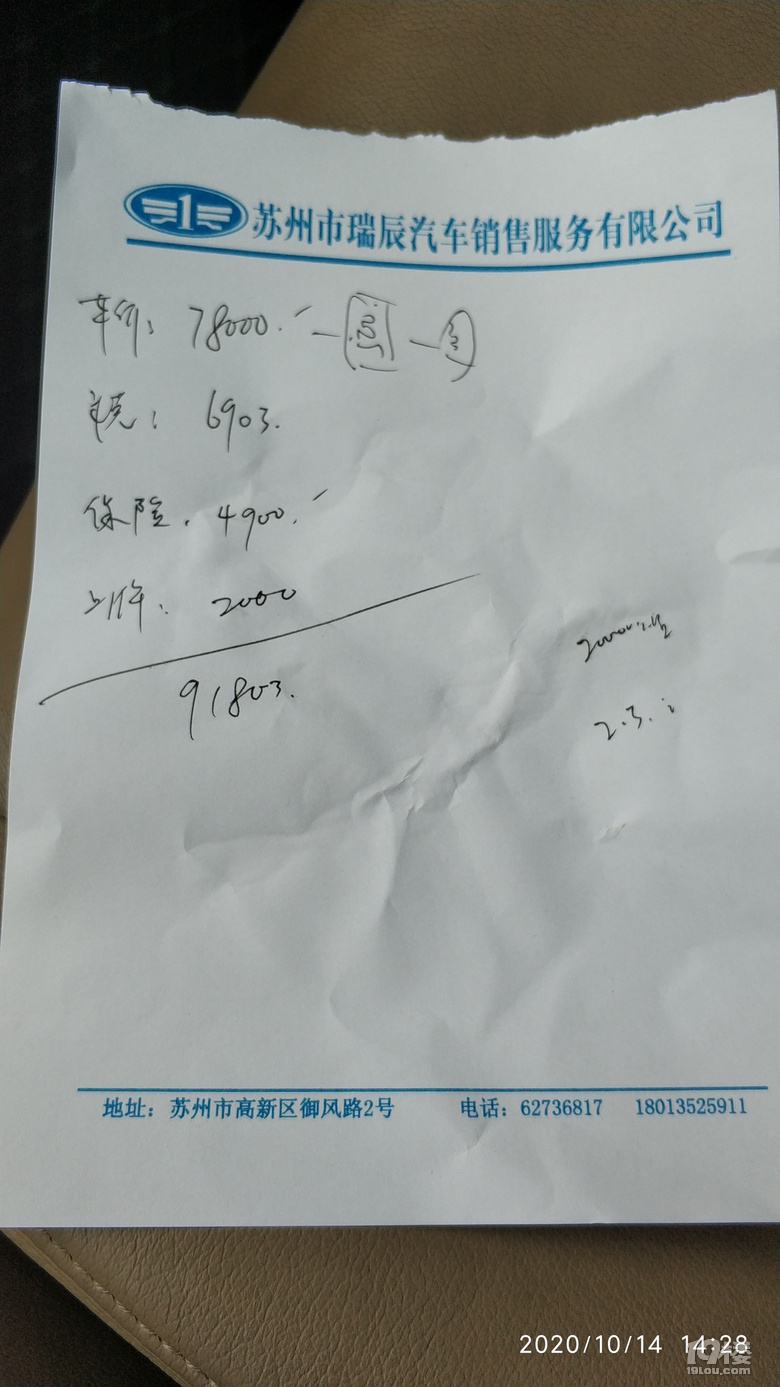 1 苏州市瑞辰汽车销售服务有限公司
车价: 78000.
税: 6903.
保险. 4900.
上牌: 2000
91803.
2.3.
地址: 苏州市高新区御风路2号 电话: 62736817 18013525911
2020/10/14 14:28
19楼
19lou.com